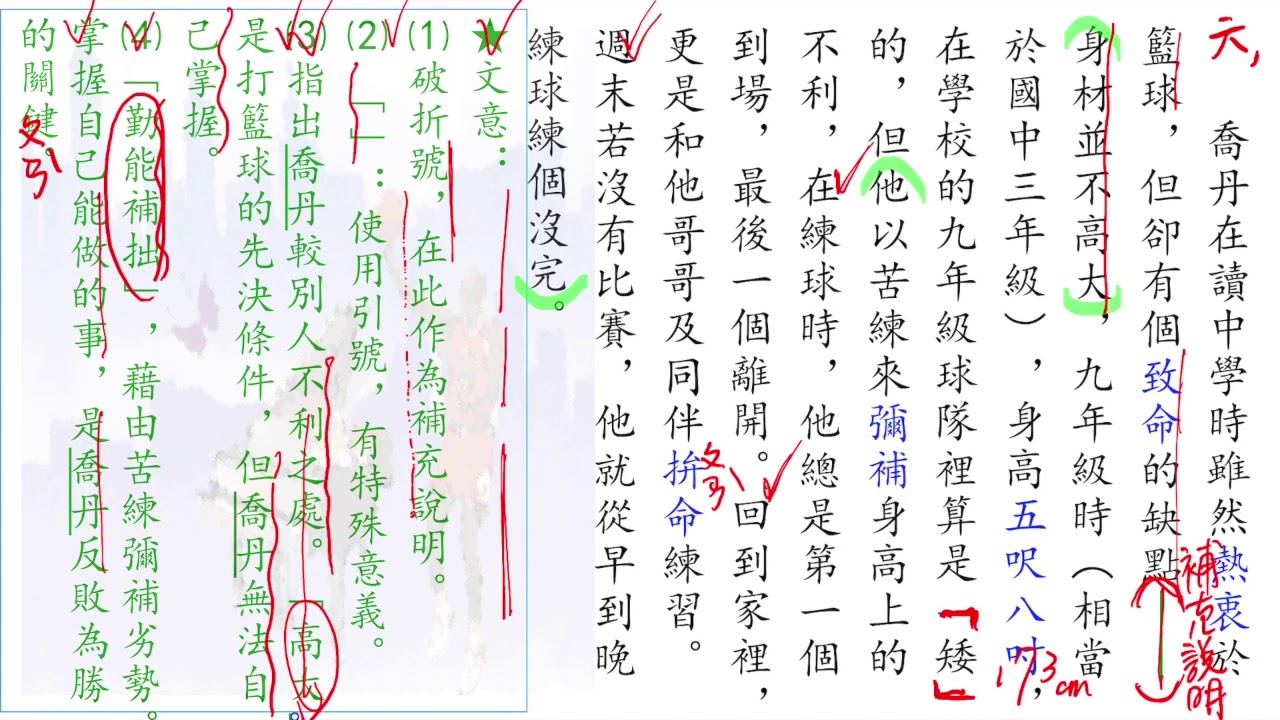 六,
喬丹在讀中學時雖然熱衷於
籃球,但卻有個致命的缺點
補充說明
身材並不高大,九年級時(相當
於國中三年級),身高五呎八吋,
173cm
在學校的九年級球隊裡算是「矮」
的,但他以苦練來彌補身高上的
不利,在練球時,他總是第一個
到場,最後一個離開。回到家裡,
更是和他哥哥及同伴拚命練習。
週末若沒有比賽,他就從早到晚
練球練個沒完。
★文意:
(1)破折號,在此作為補充說明。
(2)「」:使用引號,有特殊意義。
(3)指出喬丹較別人不利之處。「高大」
是打籃球的先決條件,但喬丹無法自
己掌握。
(4)「勤能補拙」,藉由苦練彌補劣勢。
掌握自己能做的事,是喬丹反敗為勝
的關鍵。